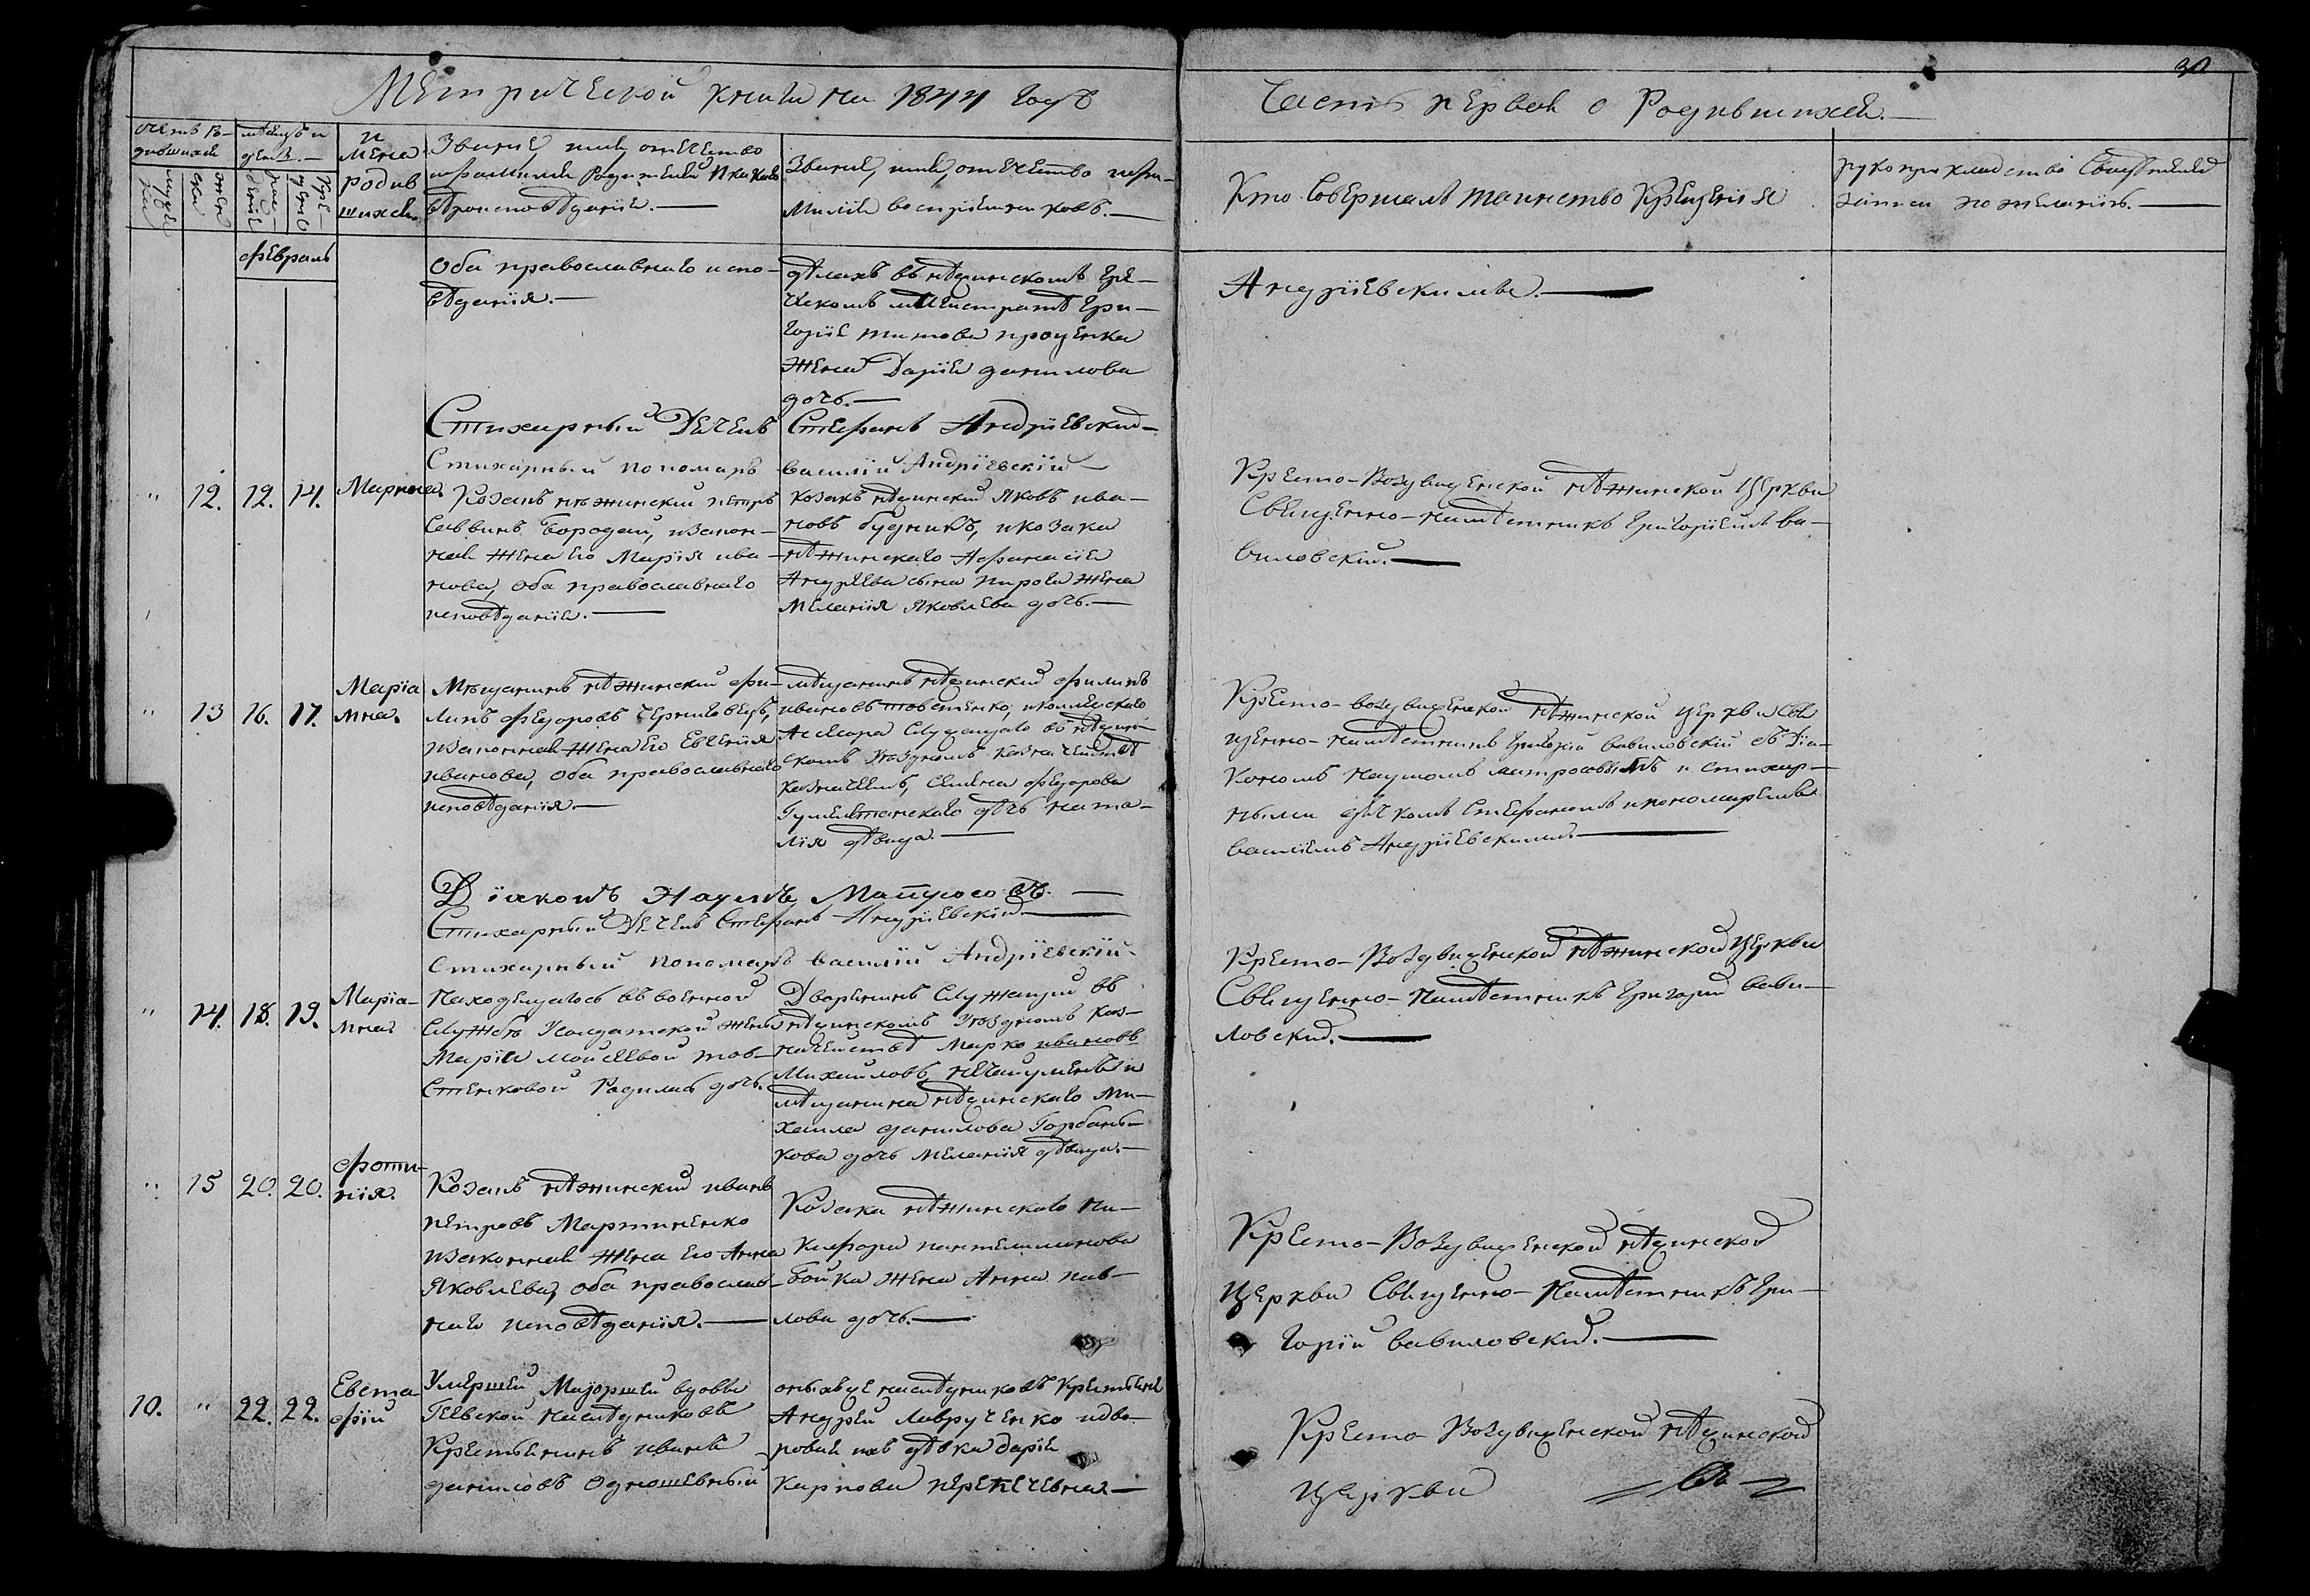 Метрической книги на 1844 годъ
Часть первая о Родившихся.
30
счетъ Ро-
дившихся
мужес
ка
женс
ка
мѣсяцъ и
день.
рож-
деніе
Кре-
щеніе
И
мена
родив
шихся.
Званіе, имя, отечество
и фамилія Родителей и какого
вѣроисповѣданія.
Званіе, имя, отечество и фа-
милія воспріемниковъ.
Кто совершалъ таинство Крещенія
рукоприкладство Свидѣтелей
записи по желанію.
февраль
Оба православнаго испо-
вѣданія.
дѣлахъ въ нѣжинскомъ гре-
ческомъ магистратѣ Гри-
горія титова проценка
жена Дарія данилова
дочь.
Андріевскимъ.
Стихарный Дячекъ Стефанъ Андріевский
Стихарный пономарь василій Андріевскій
" 12. 12. 14.
Марина.
Козакъ нѣжинский петръ
Саввинъ Бородай, изакон-
ная жена его Марія ива-
нова, оба православнаго
исповѣданія.
козакъ нѣжинский Яковъ ива-
новъ будникъ, и козака
нѣжинскаго Афанасія
Андреева сына пирога жена
Меланія Яковлева дочь.
Кресто-Воздвиженской нѣжинской Церкви
Священно-намѣстникъ Григорій ва-
виловскій.
" 13 16. 17.
Маріа
мна.
Мѣщанинъ нѣжинский фи-
липъ федоровъ черниговецъ,
изаконная жена его Евгенія
иванова, оба православнаго
исповѣданія.
мѣщанинъ нѣжинский филипъ
ивановъ товстенко, и коллежскаго
Асесора Служащаго въ нѣжин-
скомъ Уѣздномъ Казначействѣ
казначеемъ, Семена федорова
дочь ната-
лія дѣвица.
Кресто-воздвиженской нѣжинской церкви Свя
щенно-намѣстникъ Григорій вавиловскій съ діа-
кономъ Наумомъ матросовымъ и стихар-
нымъ дячкомъ Стефаномъ и пономаремъ
василіемъ Андріевскими.
Діаконъ Наумъ Матросовъ.
Стихарный Дячекъ Стефанъ Андріевскій
Стихарный пономарь василій Андріевскій
" 14. 18. 19.
Маріа-
мна
Находящагось въ военной
службѣ Солдатской жены
Марія моисеевой тов-
стенковой Родилась дочь.
Дворянинъ Служащий въ
нѣжинскомъ Уѣздномъ каз-
начействѣ Марко ивановъ
Михайловъ, и
мѣщанина нѣжинскаго Ми-
хаила данилова Горбань-
кова дочь Меланія дѣвица.
Кресто-Воздвиженской нѣжинской Церкви
Священно-Намѣстникъ Григорій вави-
ловский.
" 15 20. 20.
фоти-
нія.
Козакъ нѣжинский иванъ
петровъ Мартиненко
изаконная жена его Анна
Яковлева, оба православ-
наго исповѣданія.
Козака нѣжинскаго Ни-
кифора пантелимонова
Бойка жена Анна пав-
лова дочь.
Кресто-Воздвиженской нѣжинской
Церкви Священно-Намѣстникъ Гри-
горій вавиловский.
10. " 22. 22.
Евста-
фій
Умершей Маіоршей вдовы
Гаевской наслѣдниковъ
Крестьянинъ иванъ
даниловъ Одношевный
оныхже наслѣдниковъ Крестьяне
Андрей Лаврученко идво-
ровая ихъ дѣвка дарія
карпова
Кресто-Воздвиженской нѣжинской
Церкви